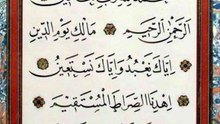 الرَّحْمٰنِ الرَّحِيمِ مَالِكِ يَوْمِ الدِّينِ
اِيَّاكَ نَعْبُدُ وَاِيَّاكَ نَسْتَعِينُ
اِهْدِنَا الصِّرَاطَ الْمُسْتَقِيمَ